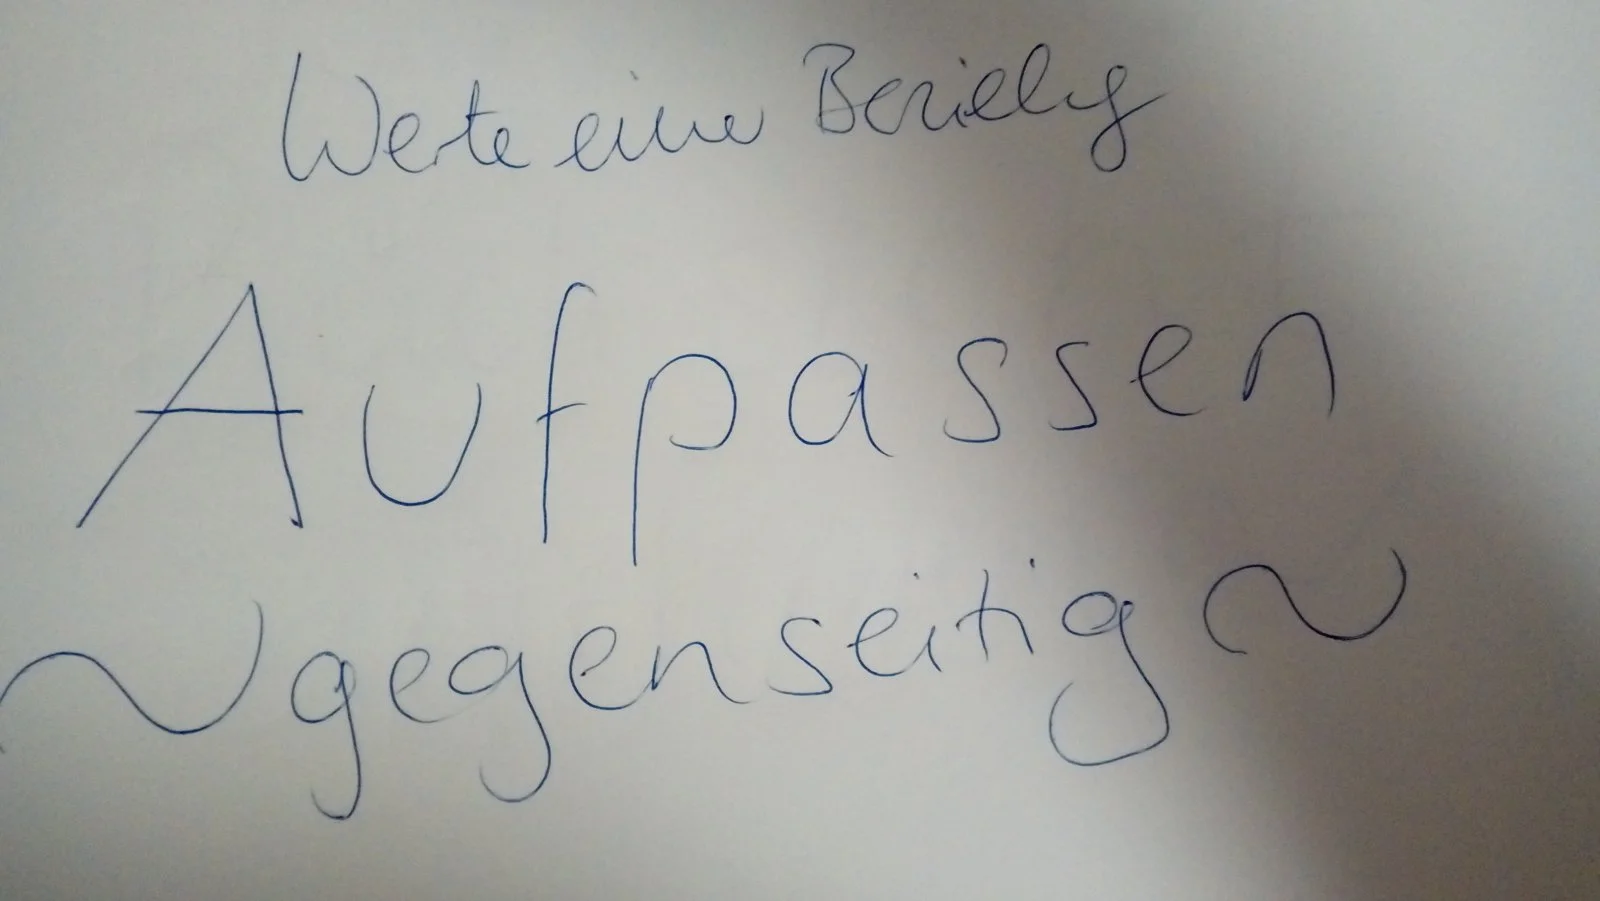 Werte einer Beziehung
Aufpassen
~gegenseitig~